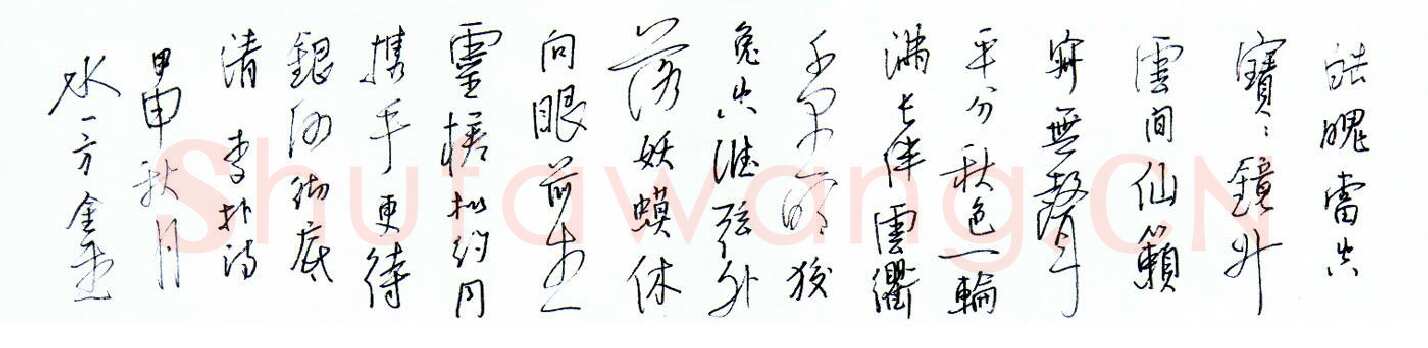 皓魄當空
寶鏡升
雲間仙籟
寂無聲
平分秋色一輪
滿長伴雲衢
千里明狡
兔空從弦外
落妖蟆休
向眼前生
靈槎拟約同
携手更待
銀河徹底
清 李朴詩
甲申秋月
水一方金
Shufawang.CN